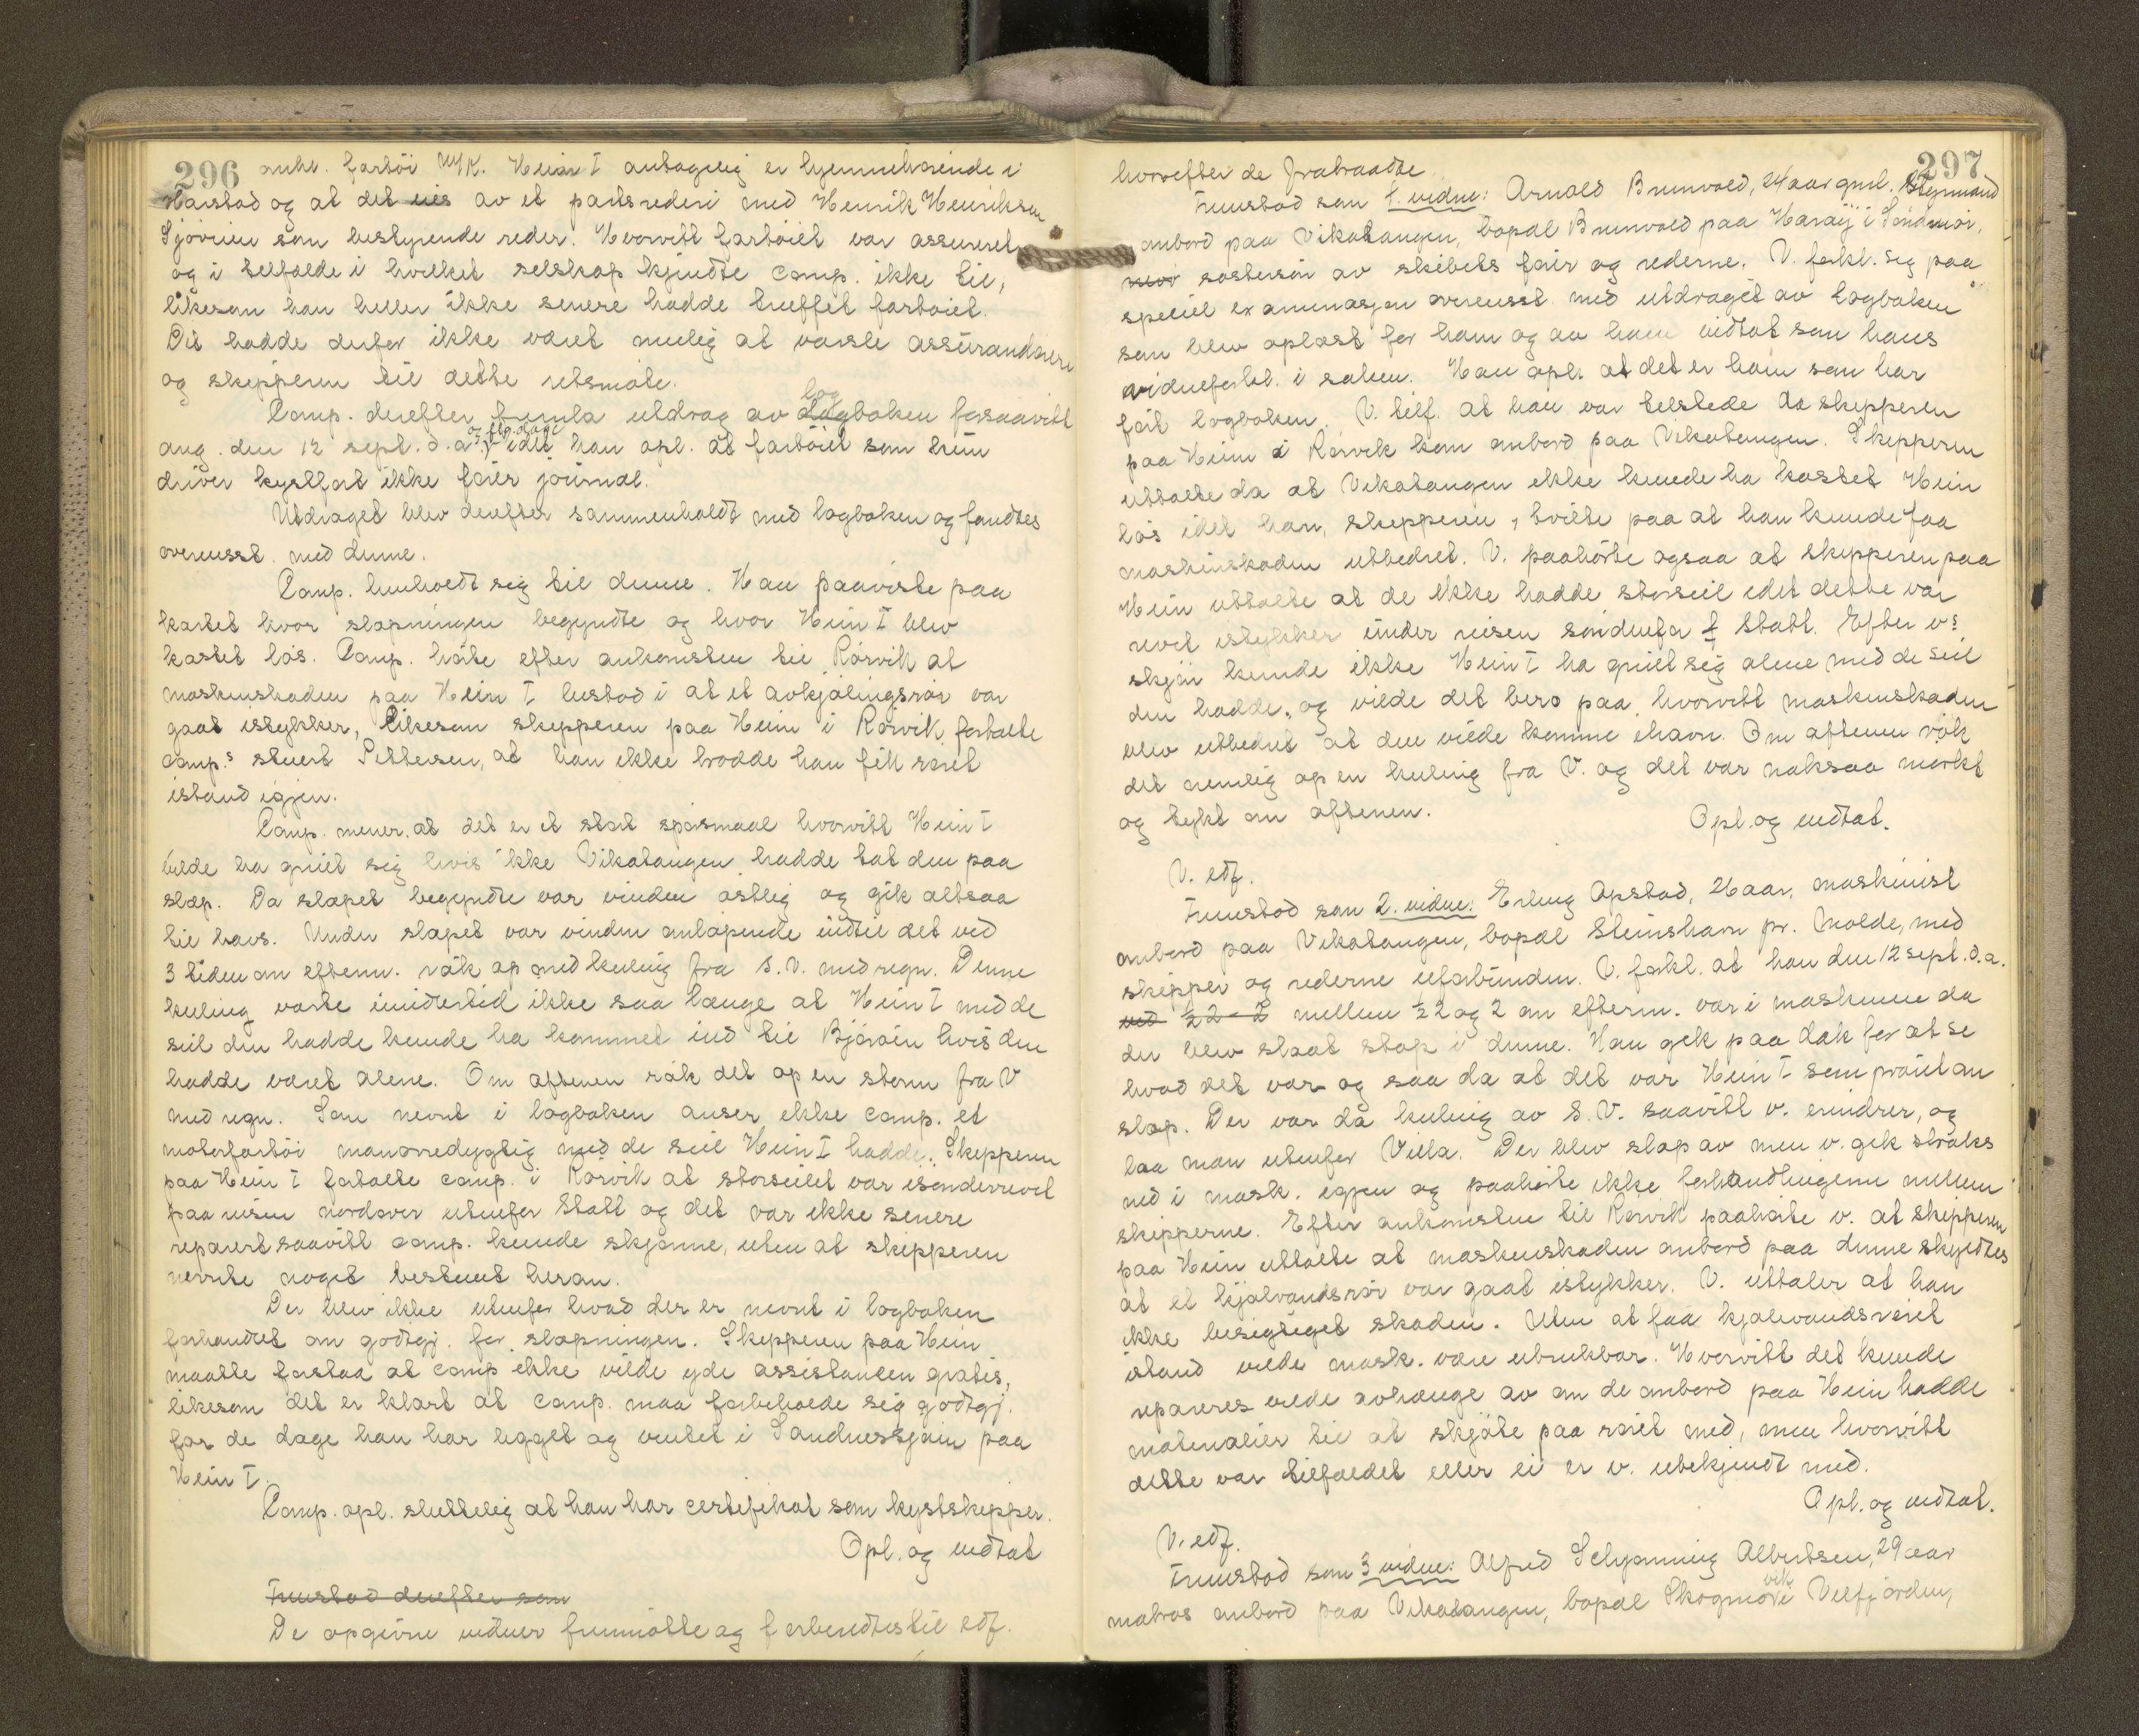 296 anh. fartöi M/K. Hein I antagelig er hjemmehörende i
Harstad og at det eies av et partsrederi med Henrik Henriksen
Sjöveien som bestyrende reder. Hvorvidt fartöiet var assurert
og i tilfælde i hvilket selskap kjendte comp. ikke til,
likesom han heller ikke senere hadde truffet fartöiet.
Det hadde derfor ikke været mulig at varsle assurandörer
og skipperen til dette retsmöte.
Comp. derefter fremla utdrag av logboken forsaavidt
ang. den 12 sept. d.a. og flg. dage idet han opl. at fartöiet som kun
driver kystfart ikke förer journal.
Utdraget blev derefter sammenholdt med logboken og fandtes
overensst. med denne.
Comp. henholdt sig til denne. Han paaviste paa
kartet hvor slæpningen begyndte og hvor Hein I blev
kastet lös. Comp. hörte efter ankomsten til Rörvik at
maskinskaden paa Hein I bestod i at et avkjölingsrör var
gaat istykker, likesom skipperen paa Hein i Rörvik fortalte
comp.s stuert Pettersen, at han ikke trodde han fik röret
istand igjen.
Comp. mener at det er et stort spörsmaal hvorvidt Hein I
vilde ha greiet sig hvis ikke Vikatangen hadde tat den paa
slæp. Da slæpet begyndte var vinden östlig og gik altsaa
til havs. Under slæpet var vinden anlöpende indtil det ved
3 tiden om efterm. rök op med kuling fra S.V. med regn. Denne
kuling varte imidlertid ikke saa længe at Hein I med de
seil den hadde kunde ha kommet ind til Björöen hvis den
hadde været alene. Om aftenen rök det op en storm fra V
med regn. Som nevnt i logboken anser ikke comp. et
motorfartöi manövredygtig med de seil Hein I hadde. Skipperen
paa Hein I fortalte comp. i Rörvik at storseilet var isönderrevet
paa reisen nordover utenfor Statt og det var ikke senere
reparert saavidt comp. kunde skjönne, uten at skipperen
nevnte noget bestemt herom.
Der blev ikke utenfor hvad der er nevnt i logboken
forhandlet om godtgj. for slæpningen. Skipperen paa Hein
maatte forstaa at comp ikke vilde yde assistansen gratis,
likesom det er klart at comp. maa forbeholde sig godtgj.
for de dage han har ligget og ventet i Sandnessjöen paa
Hein I.
Comp. opl. sluttelig at han har certifikat som kystskipper.
Opl. og vedtat
Fremstod derefter som
De opgivne vidner fremmötte og forberedtes til edf.
297
hvorefter de fratraadte.
Fremstod som 1. vidne: Arnold Brunvold, 24 aar gml. Styrmand
ombord paa Vikatangen, bopæl Brunvold paa Haröy i Söndmör,
söstersön av skibets förer og rederne. V. forkl. sig paa
speciel examinasjon overensst med utdraget av logboken
som blev oplæst for ham og av ham vedtat som hans
vidneforkl. i saken. Han opl. at det er ham som har
fört logboken. V. tilf. at han var tilstede da skipperen
paa Hein i Rörvik kom ombord paa Vikatangen. Skipperen
uttalte da at Vikatangen ikke kunde ha kastet Hein
lös idet han, skipperen, tvilte paa at han kunde faa
maskinskaden utbedret. V. paahörte ogsaa at skipperen paa
Hein uttalte at de ikke hadde storseil idet dette var
revet istykker under reisen söndenfor f Statt. Efter v.s
skjön kunde ikke Hein I ha greiet sig alene med de seil
den hadde, og vilde det bero paa hvorvidt maskinskaden
blev utbedret at den vilde komme ihavn. Om aftenen rök
det nemlig op en kuling fra V. og det var noksaa mörkt
og tykt om aftenen.
Opl. og vedtat.
V. edf.
Fremstod som 2. vidne: Erling Opstad, 26 aar, maskinist
ombord paa Vikatangen, bopæl Steinshavn pr. Molde, med
skipper og rederne uforbunden. V. forkl. at han den 12 sept. d.a.
ved ½2-2 mellem ½2 og 2 om efterm. var i maskinen da
der blev slaat stop i denne. Han gik paa dæk for at se
hvad det var og saa da at det var Hein I som praiet om
slæp. Der var da kuling av S.V. saavidt v. erindrer, og
laa man utenfor Villa. Der blev slæp av men v. gik straks
ned i mask. igjen og paahörte ikke forhandlingerne mellem
skipperne. Efter ankomsten til Rörvik paahörte v. at skipperen
paa Hein uttalte at maskinskaden ombord paa denne skyldtes
at et kjölvandsrör var gaat istykker. V. uttaler at han
ikke besigtiget skaden. Uten at faa kjölevandsröret
istand vilde mask. være ubrukbar. Hvorvidt det kunde
repareres vilde avhænge av om de ombord paa Hein hadde
materialier til at skjöte paa röret med, men hvorvidt
dette var tilfældet eller ei er v. ubekjendt med.
Opl. og vedtat.
V. edf.
Fremstod som 3 vidne: Alfred Schjanning Albertsen, 29 aar
matros ombord paa Vikatangen, bopæl Skogmo vik Velfjorden,